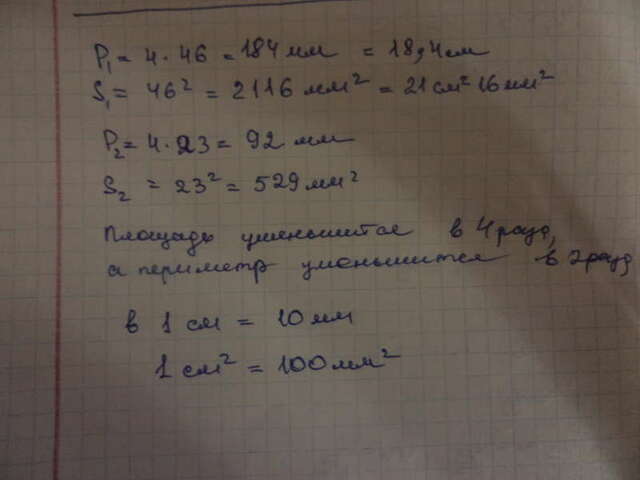 P₁ = 4 · 46 = 184 мм = 18,4 см
S₁ = 46² = 2116 мм² = 21 см² 16 мм²
P₂ = 4 · 23 = 92 мм
S₂ = 23² = 529 мм²
Площадь уменьшится в 4 раза,
а периметр уменьшится в 2 раза
в 1 см = 10 мм
1 см² = 100 мм²